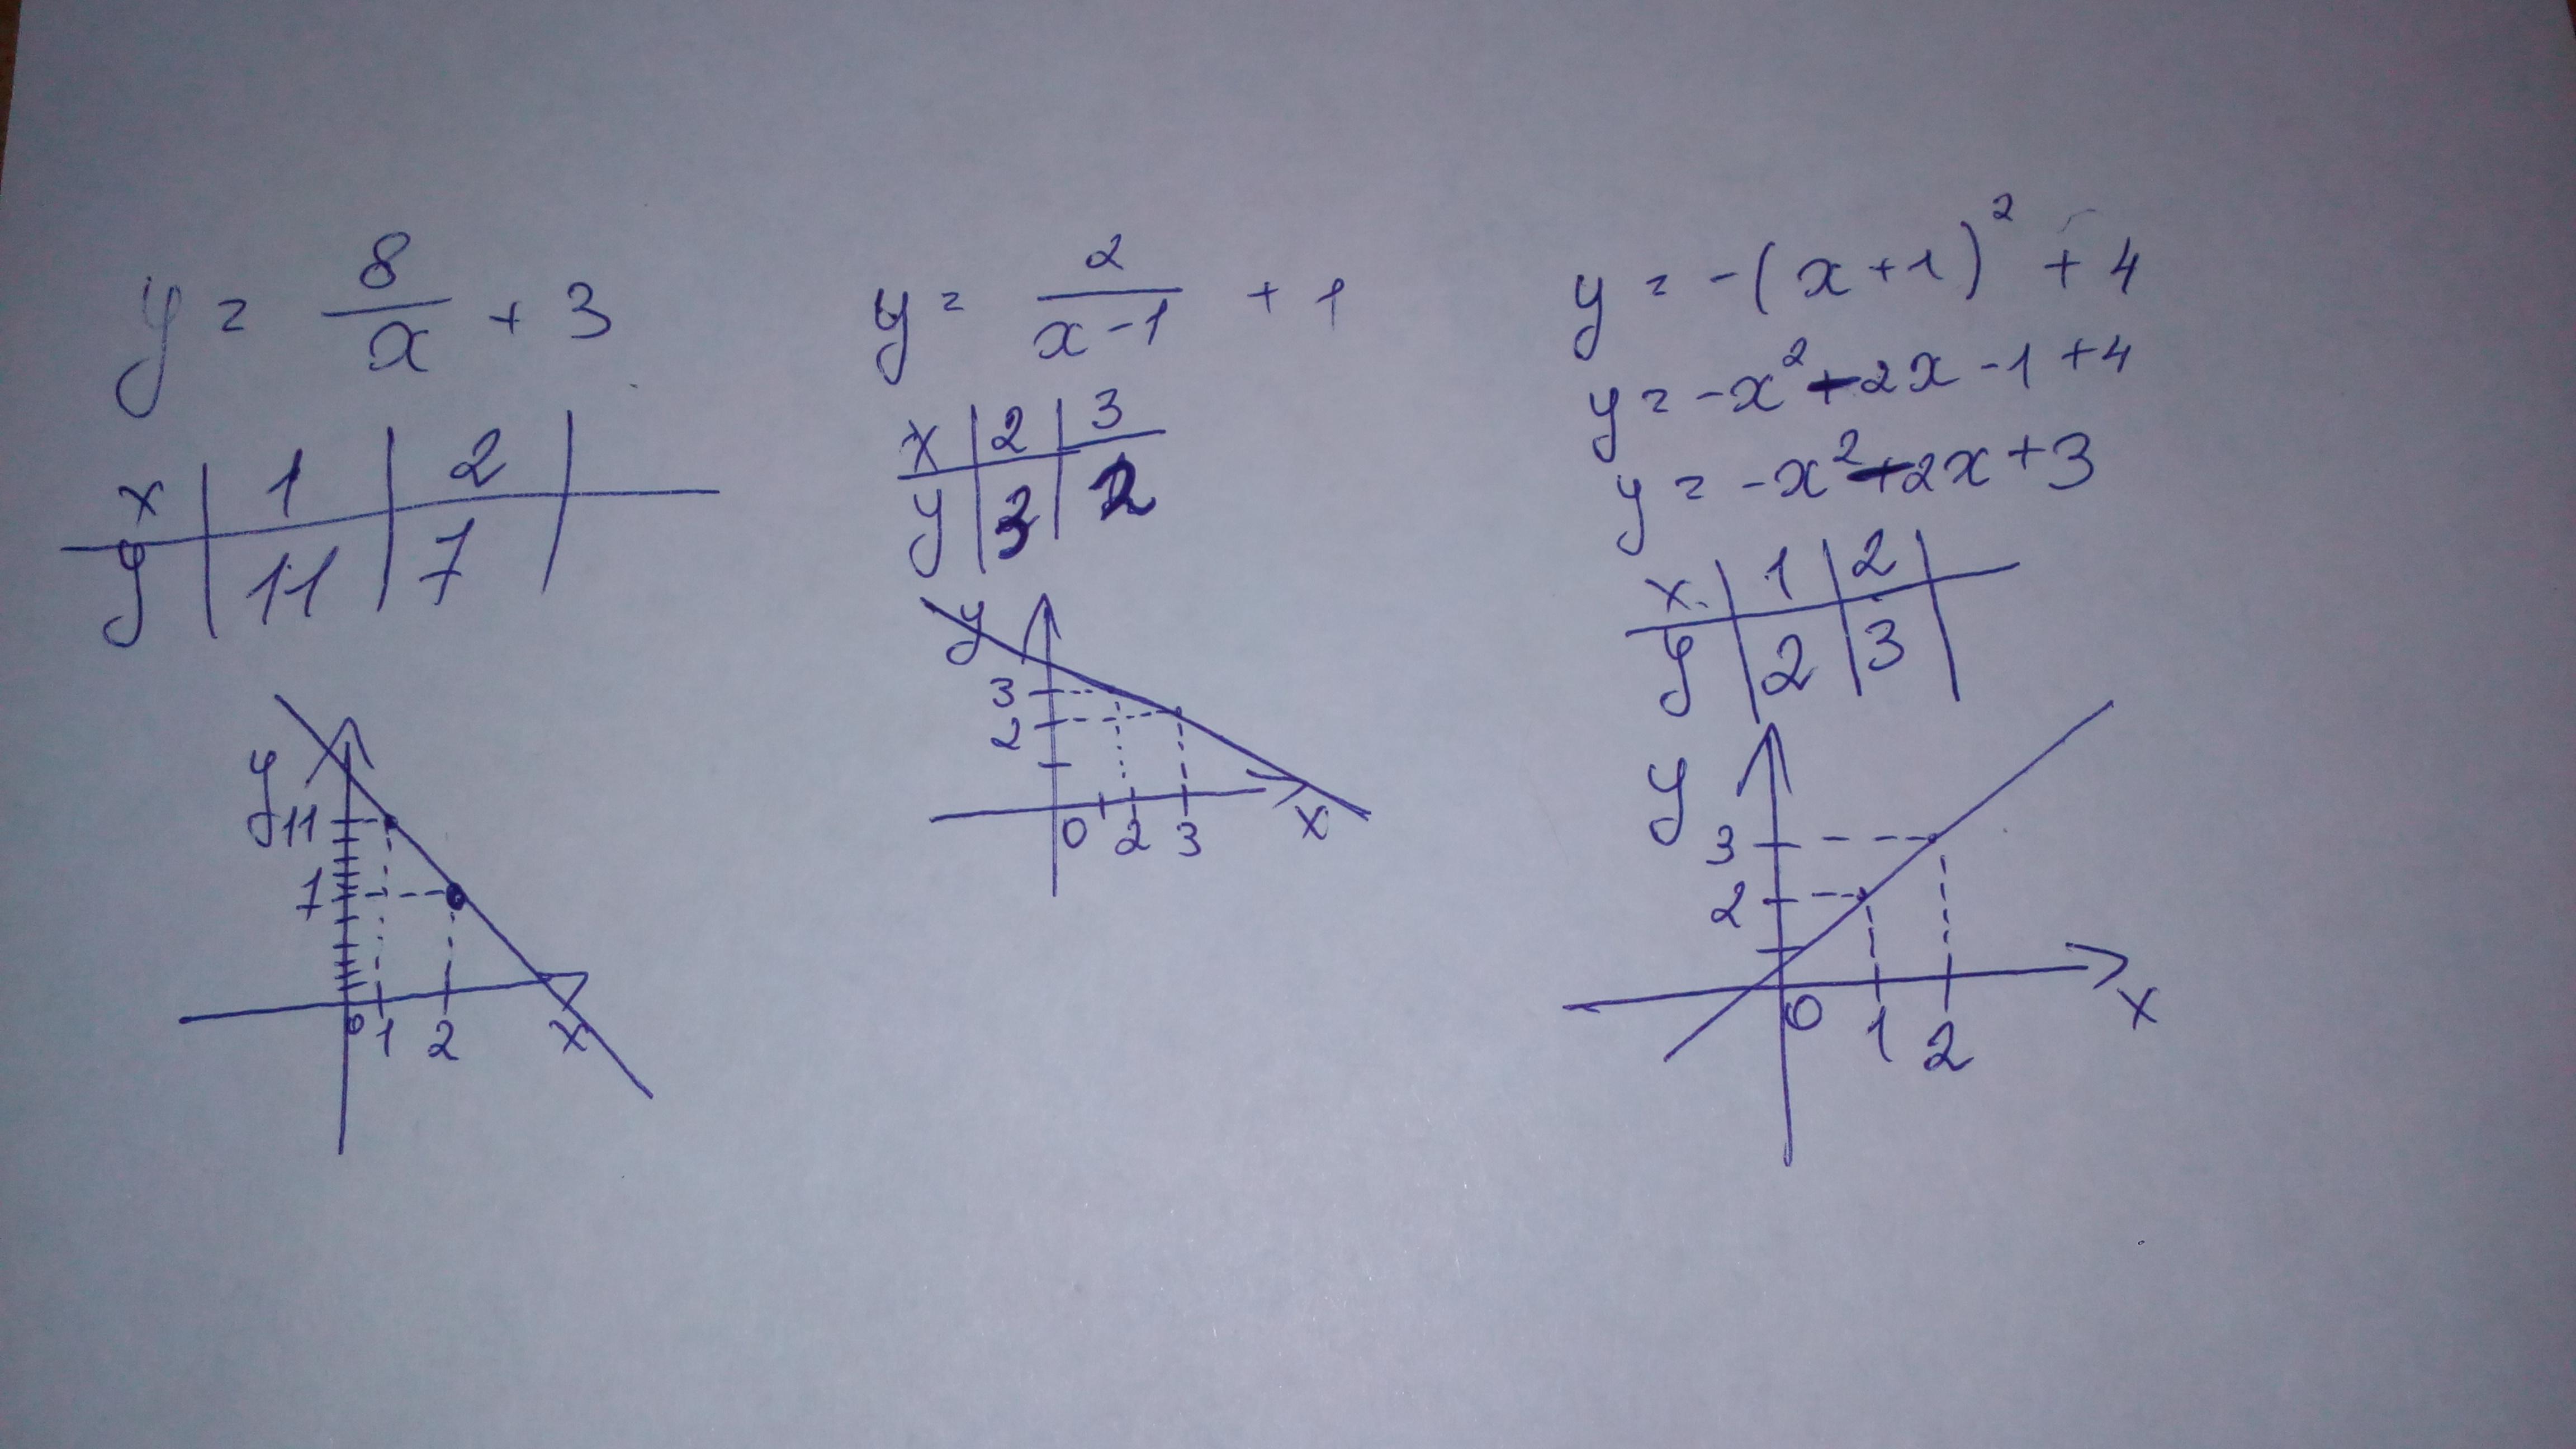 y = 8/x + 3
x | 1 | 2 |
y | 11 | 7 |
y
11
7
0 1 2 x
y = 2/(x-1) + 1
x | 2 | 3
y | 3 | 2
y
3
2
0 2 3 x
y = -(x+1)² + 4
y = -x² - 2x - 1 + 4
y = -x² - 2x + 3
x | 1 | 2 |
y | 2 | 3 |
y
3
2
0 1 2 x